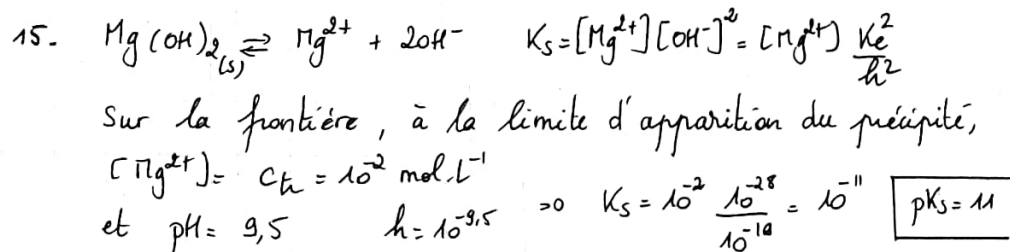 15. Mg(OH)₂(s) ⇌ Mg²⁺ + 2OH⁻ Ks = [Mg²⁺][OH⁻]² = [Mg²⁺] Ke²/h²
Sur la frontière, à la limite d'apparition du précipité,
[Mg²⁺] = Ctr = 10⁻² mol.L⁻¹
et pH = 9,5 h = 10⁻⁹·⁵ => Ks = 10⁻² 10⁻²⁸/10⁻¹⁹ = 10⁻¹¹ pKs = 11